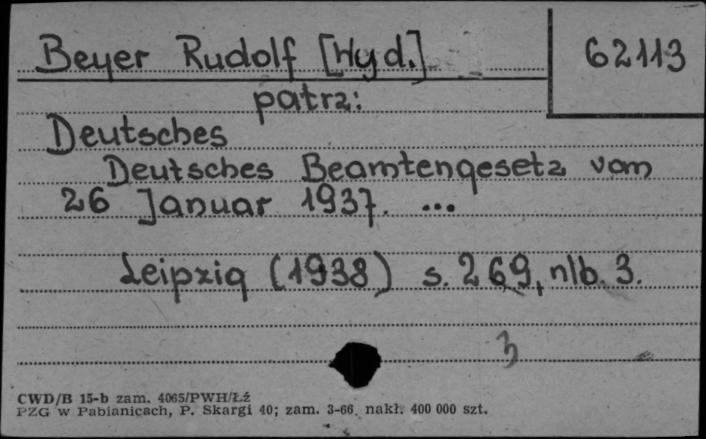 Beyer Rudolf [Wyd.] 62113
patrz:
Deutsches
Deutsches Beamtengesetz vom
26 Januar 1937. ...
Leipzig (1938) s. 269, nlb. 3.
3
CWD/B 15-b zam. 4065/PWH/Łż
PZG w Pabianicach, P. Skargi 40; zam. 3-66 nakł. 400 000 szt.